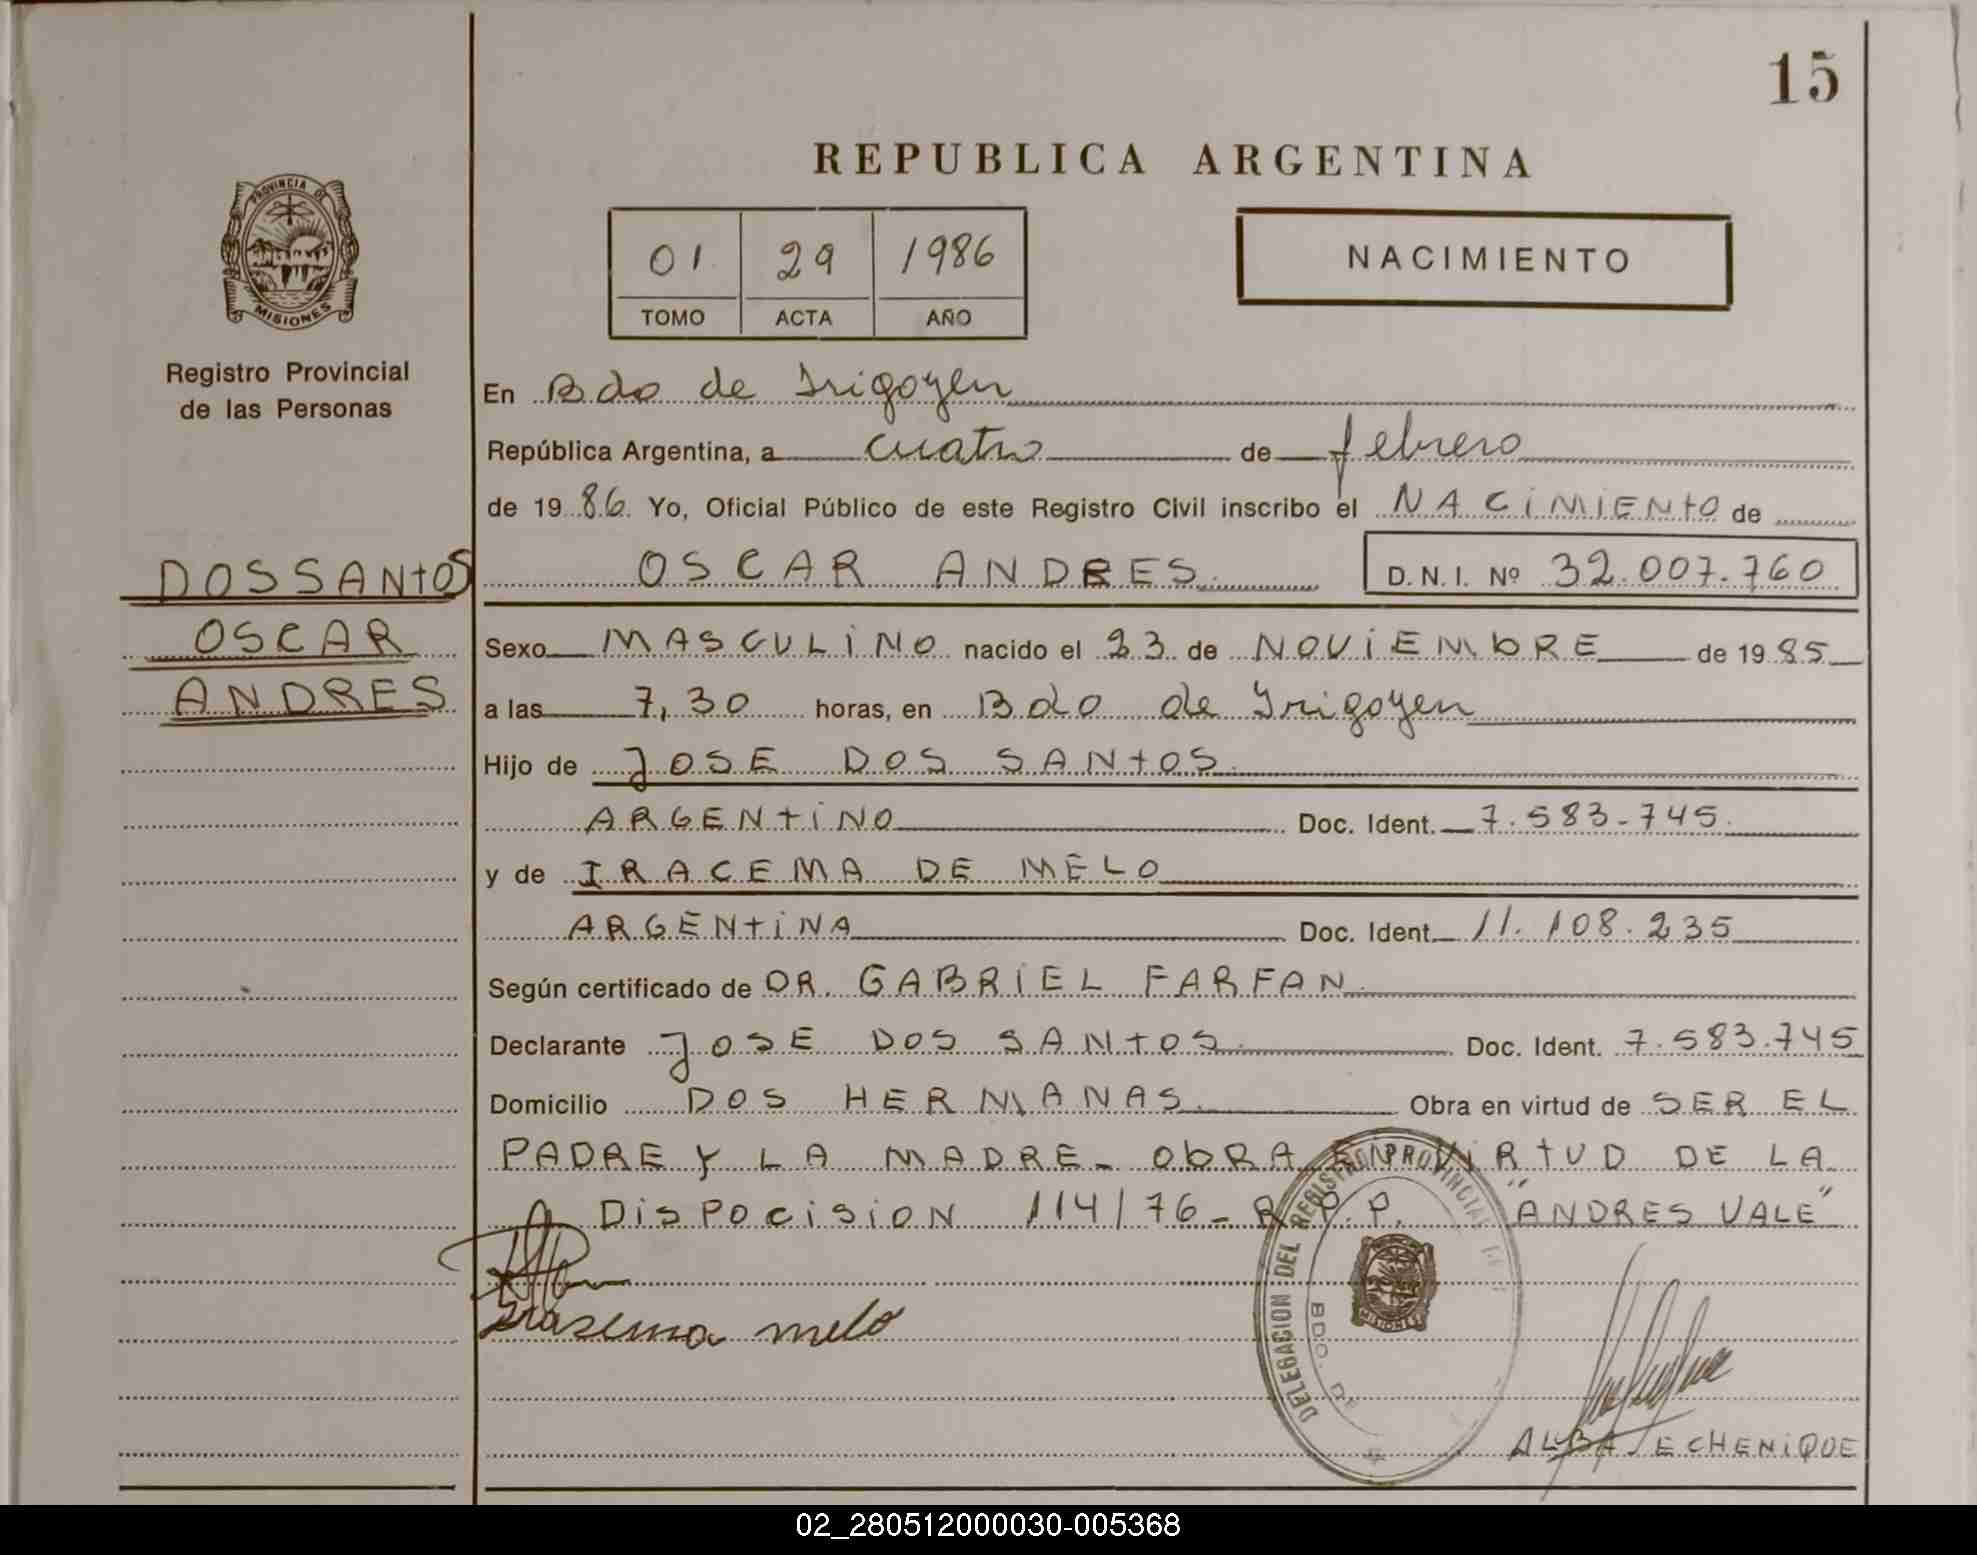 15
REPUBLICA ARGENTINA
PROVINCIA DE
MISIONES
01 29 1986
TOMO ACTA AÑO
NACIMIENTO
Registro Provincial
de las Personas
DOS SANTOS
OSCAR
ANDRES
En Bdo de Irigoyen
República Argentina, a cuatro de febrero
de 1986. Yo, Oficial Público de este Registro Civil inscribo el NACIMIENTO de
OSCAR ANDRES. D.N.I. Nº 32.007.760
Sexo MASCULINO nacido el 23 de NOVIEMBRE de 1985
a las 7,30 horas, en Bdo de Irigoyen
Hijo de JOSE DOS SANTOS.
ARGENTINO Doc. Ident. 7.583.745.
y de IRACEMA DE MELO
ARGENTINA Doc. Ident. 11.108.235
Según certificado de DR. GABRIEL FARFAN.
Declarante JOSE DOS SANTOS. Doc. Ident. 7.583.745
Domicilio DOS HERMANAS. Obra en virtud de SER EL
PADRE Y LA MADRE- OBRA EN VIRTUD DE LA
DISPOCISION 114/76- R.P.P. "ANDRES VALE"
Irasema melo
DELEGACION DEL REGISTRO PROVINCIAL DE
BDO. DE
MISIONES
ALBA ECHENIQUE
02_280512000030-005368